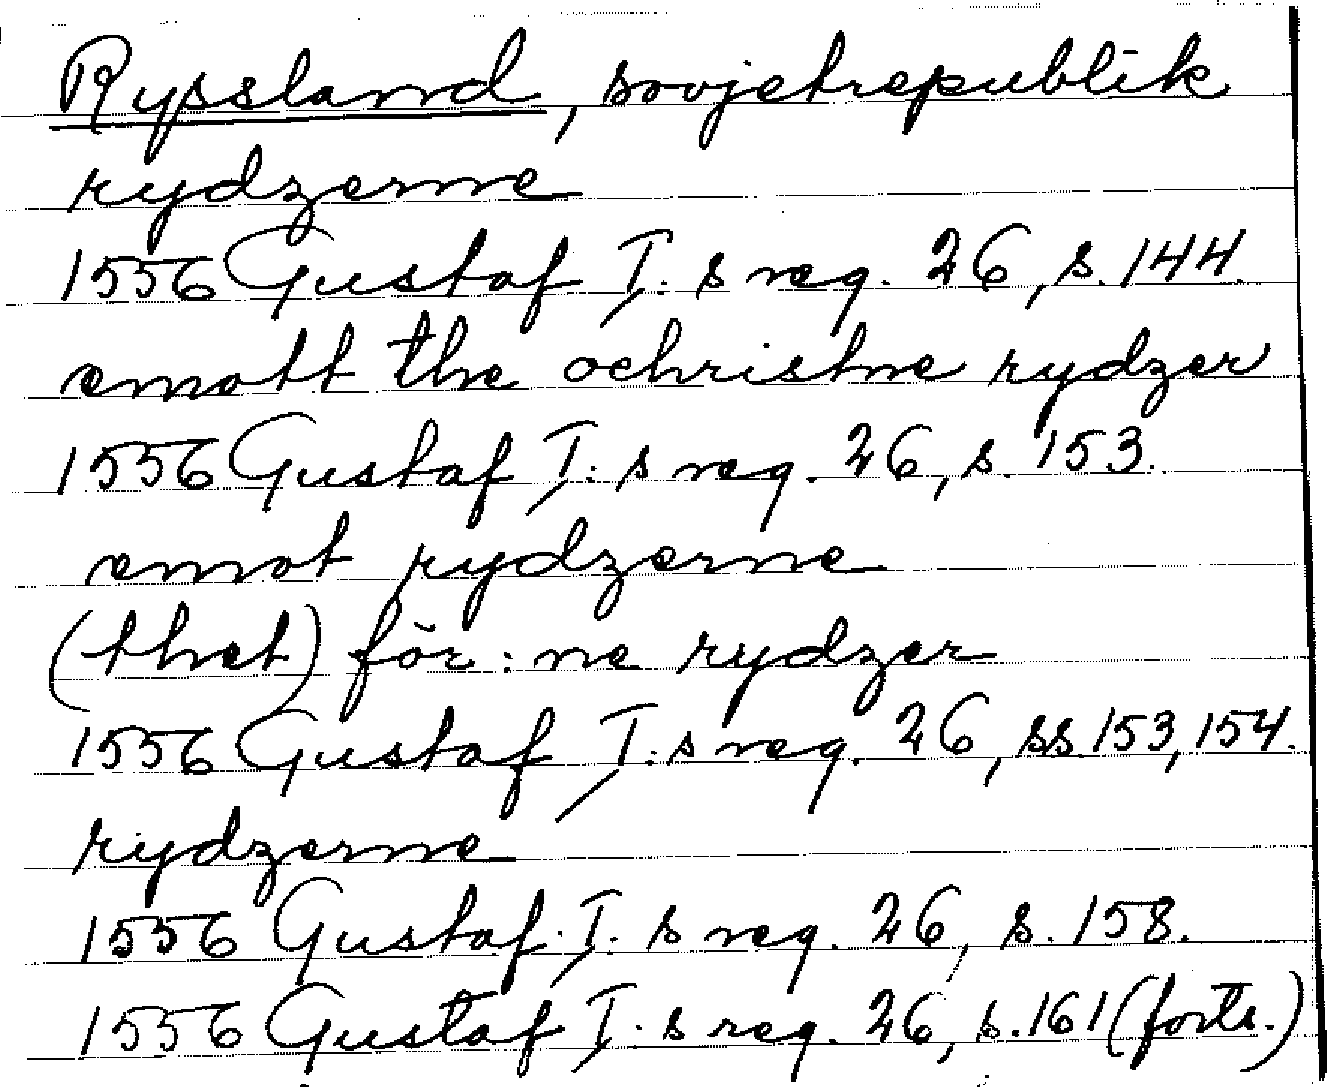 Ryssland, sovjetrepublik
rydzerne
1556 Gustaf I:s reg. 26, s. 144.
emott the ochristne rydzer
1556 Gustaf I:s reg. 26, s. 153.
emot rydzerne
(thet) för:ne rydzer
1556 Gustaf I:s reg. 26, ss 153, 154.
rydzerne
1556 Gustaf I:s reg. 26, s. 158.
1556 Gustaf I:s reg. 26, s. 161 (forts.)